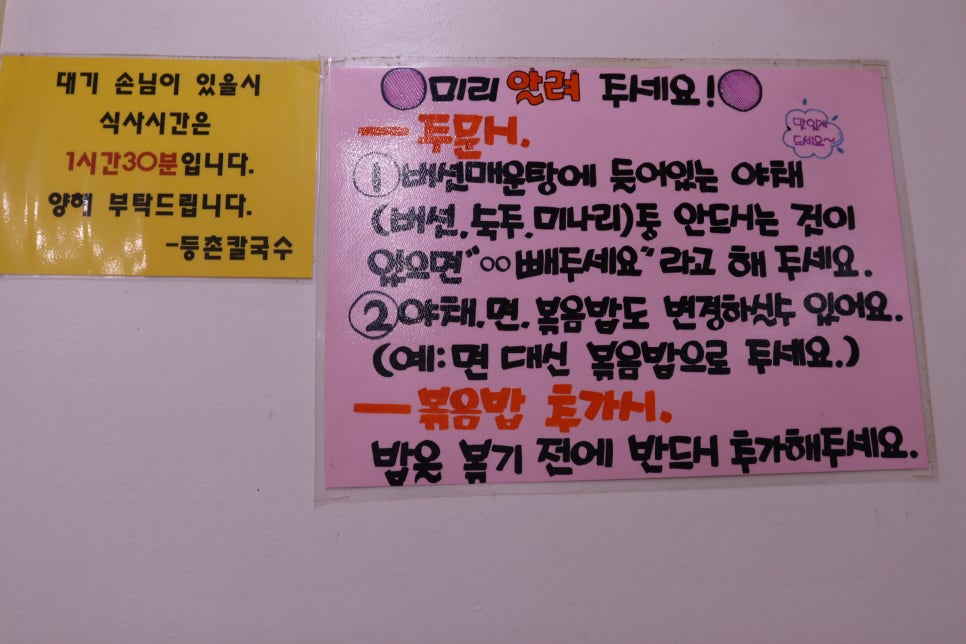 대기 손님이 있을시
식사시간은
1시간30분입니다.
양해 부탁드립니다.
-등촌칼국수
미리 알려 주세요!
맛있게
드세요~
— 주문시,
①버섯매운탕에 들어있는 야채
(버섯,숙주,미나리)등 안드시는 것이
있으면 "○○빼주세요"라고 해 주세요.
②야채,면,볶음밥도 변경하실수 있어요.
(예:면 대신 볶음밥으로 주세요.)
— 볶음밥 추가시,
밥을 볶기 전에 반드시 추가해주세요.